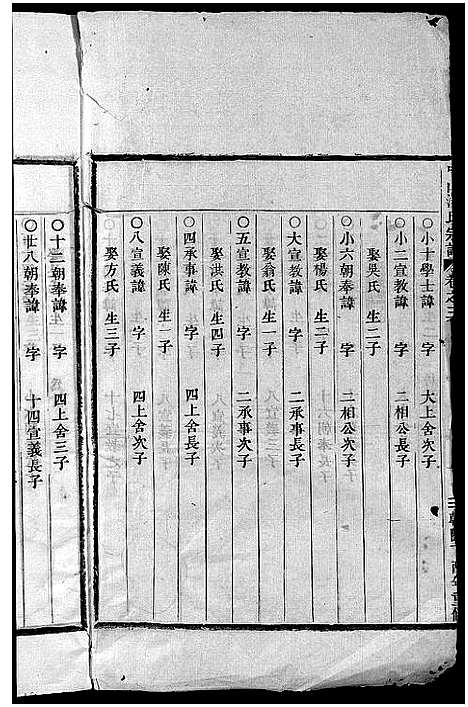 〇小十學士諱　字　大上舍次子
〇小二宣教諱　字　二相公長子
娶吳氏　生二子
〇小六朝奉諱　字　二相公次子
娶楊氏　生二子
〇大宣教諱　字　二承事長子
娶翁氏　生一子
〇五宣教諱　字　二承事次子
娶洪氏　生四子
〇四承事諱　字　四上舍長子
娶陳氏　生一子
〇八宣義諱　字　四上舍次子
娶方氏　生三子
〇十二朝奉諱　字　四上舍三子
〇廿八朝奉諱　字　十四宣義長子